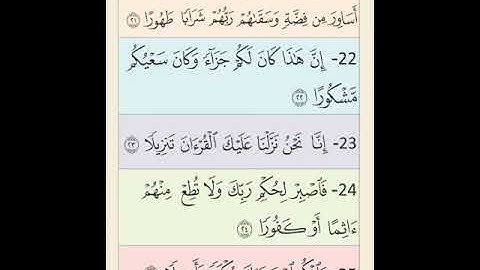 أَسَاوِرَ مِن فِضَّةٍ وَسَقَىٰهُمْ رَبُّهُمْ شَرَابًا طَهُورًا ٢١
22- إِنَّ هَٰذَا كَانَ لَكُمْ جَزَآءً وَكَانَ سَعْيُكُم
مَّشْكُورًا ٢٢
23- إِنَّا نَحْنُ نَزَّلْنَا عَلَيْكَ ٱلْقُرْءَانَ تَنزِيلًا ٢٣
24- فَٱصْبِرْ لِحُكْمِ رَبِّكَ وَلَا تُطِعْ مِنْهُمْ
ءَاثِمًا أَوْ كَفُورًا ٢٤